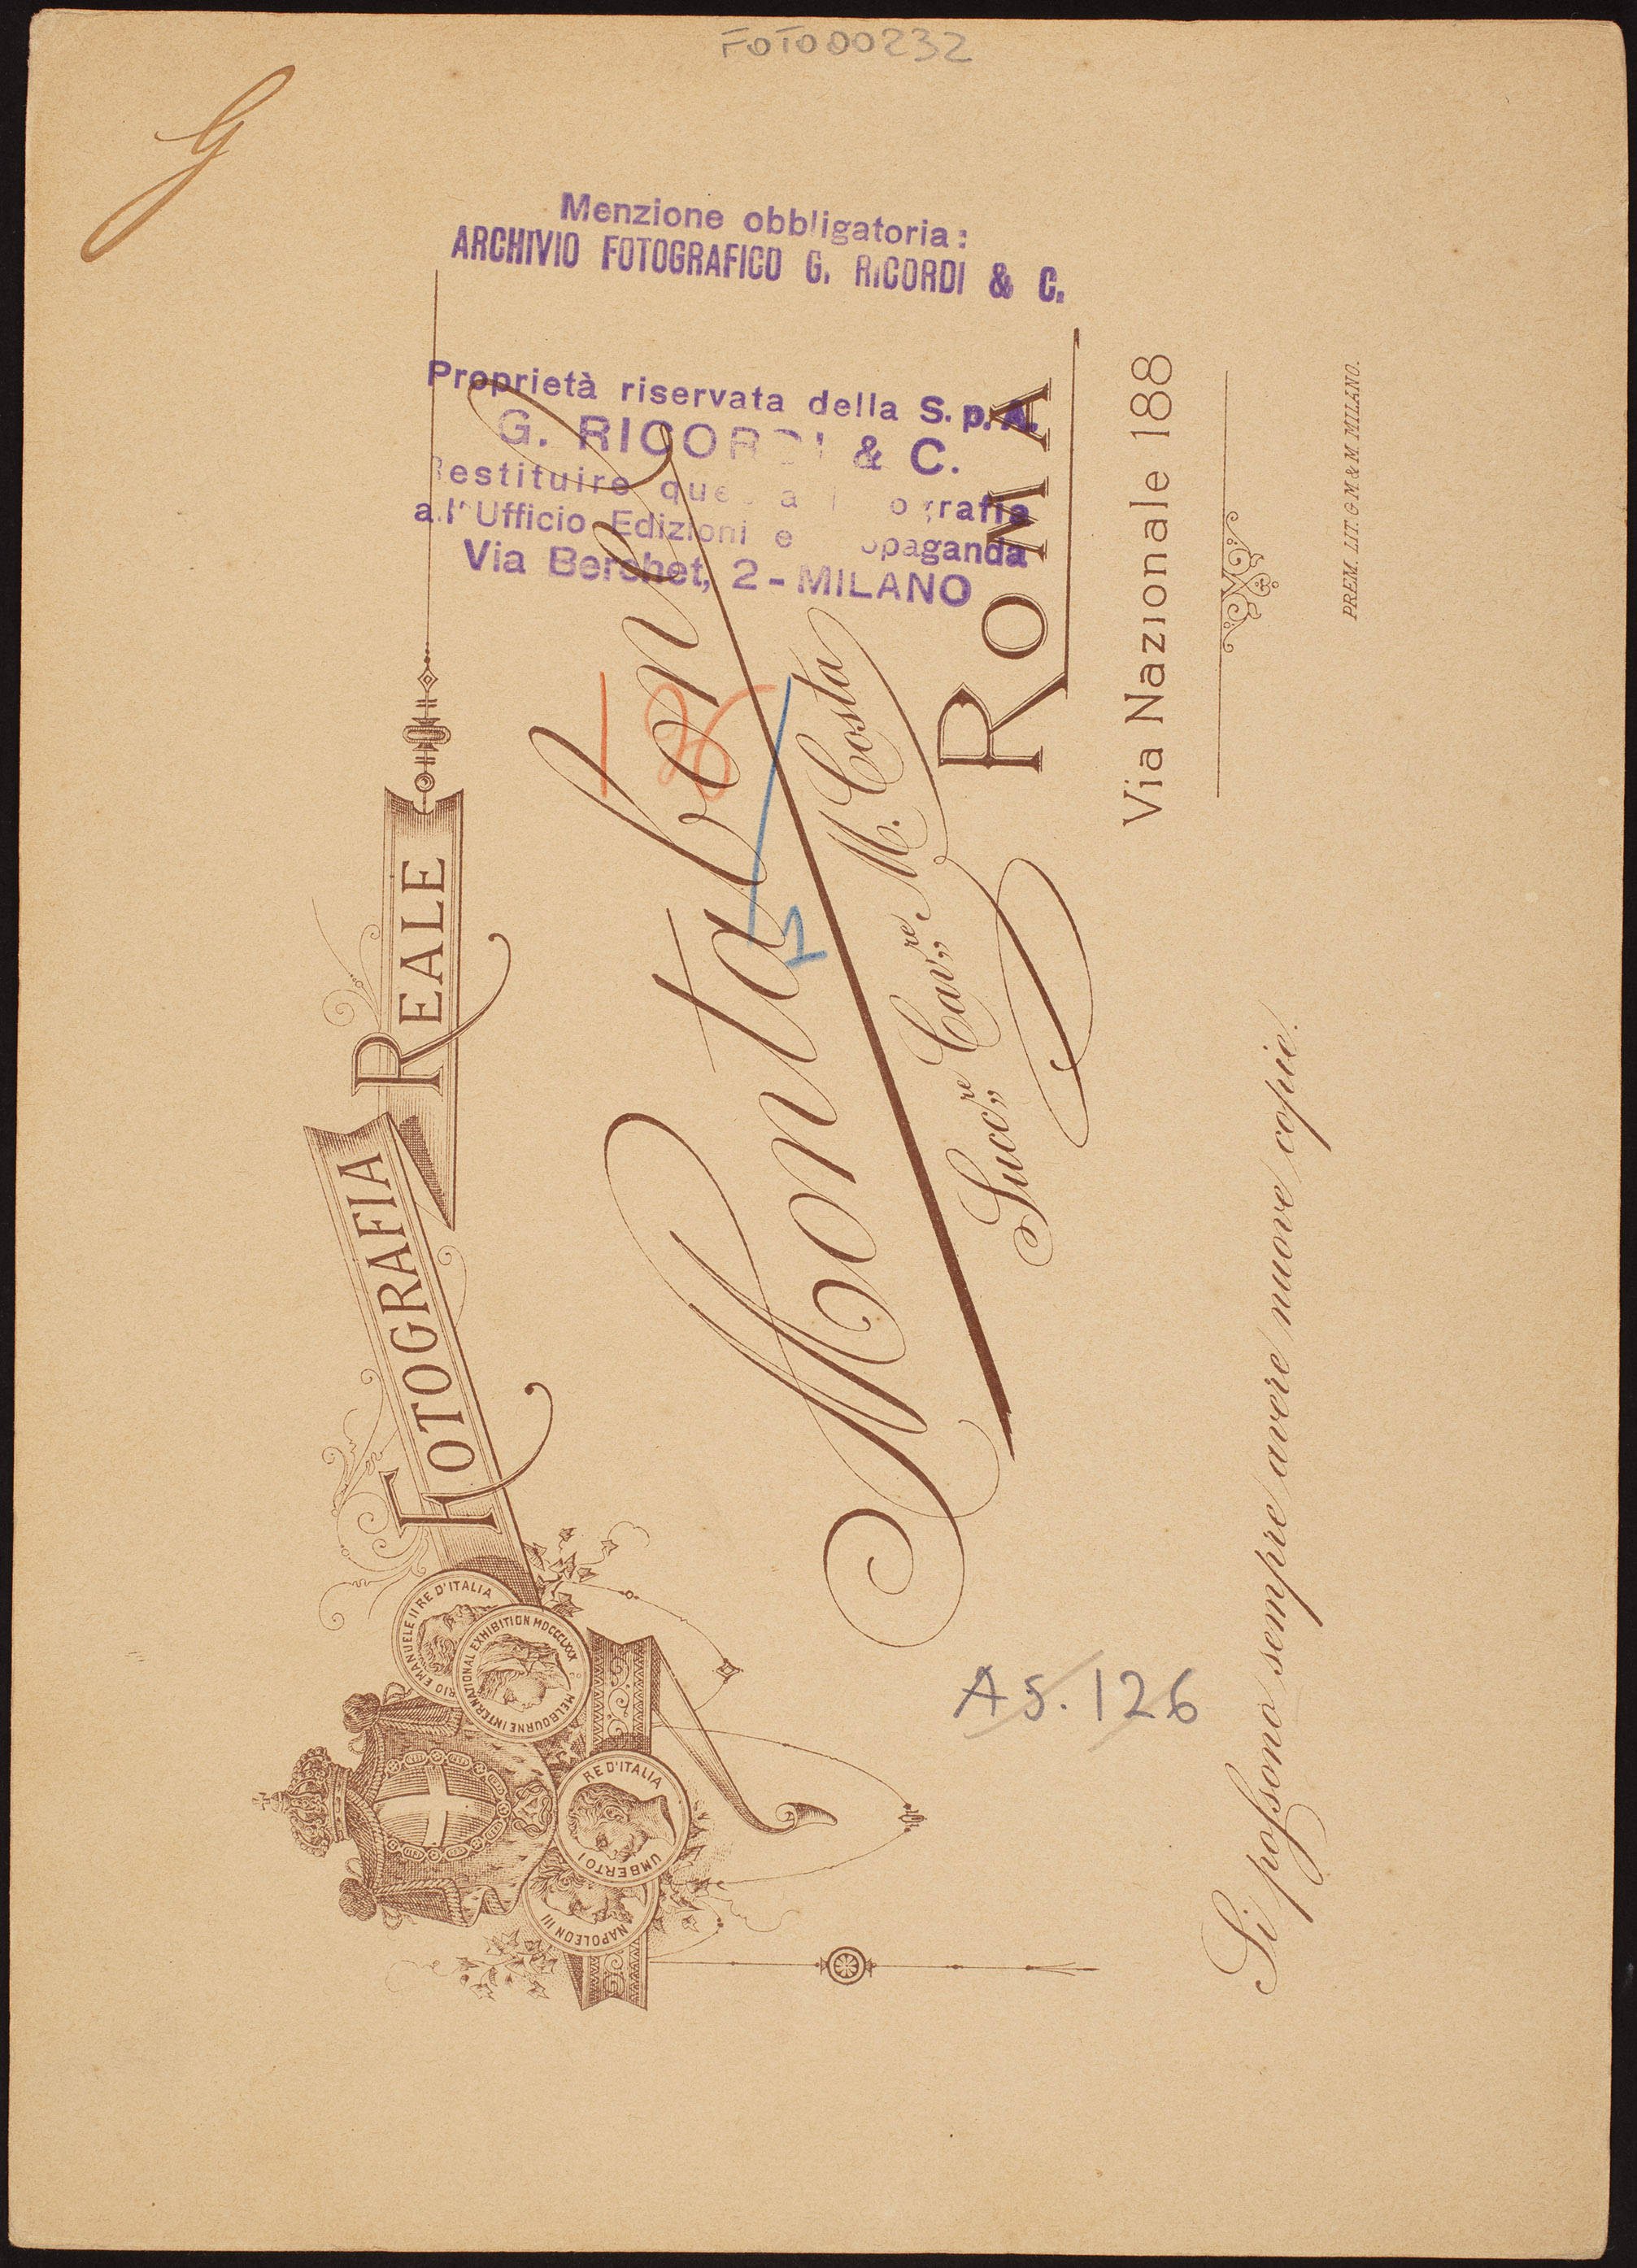 FOTO00232
G
Menzione obbligatoria:
ARCHIVIO FOTOGRAFICO G. RICORDI & C.
Proprietà riservata della S.p.A.
G. RICORDI & C.
Restituire
all'Ufficio Edizioni e
Via Berchet, 2 - MILANO
FOTOGRAFIA REALE
VITTORIO EMANUELE II RE D'ITALIA
MELBOURNE INTERNATIONAL EXHIBITION MDCCCLXXX
UMBERTO I RE D'ITALIA
NAPOLEON III
Montabone
Succ,,re Cav,,re M. Costa
ROMA
Via Nazionale 188
Si possono sempre avere nuove copie.
PREM. LIT. G. M. & M. MILANO.
A 5. 126